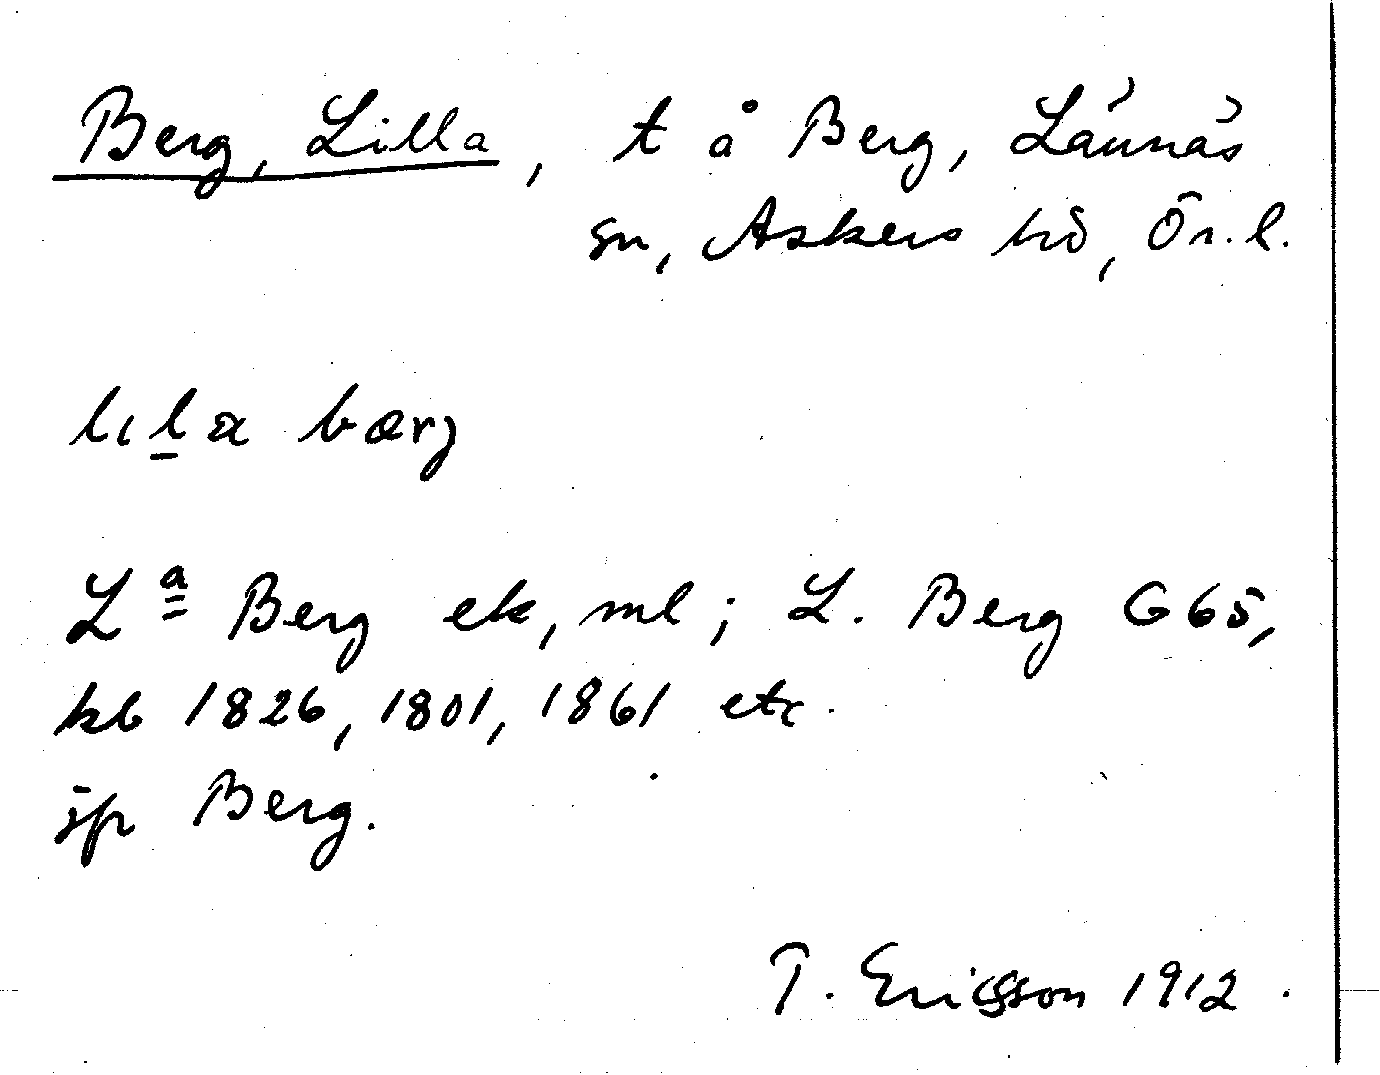 Berg, Lilla, t å Berg, Lännäs
sn, Askers hd, Ör. l.
lıla bærj
Lª Berg ek, ml; L. Berg G65,
kb 1826, 1801, 1861 etc.
jp Berg.
T. Ericsson 1912.